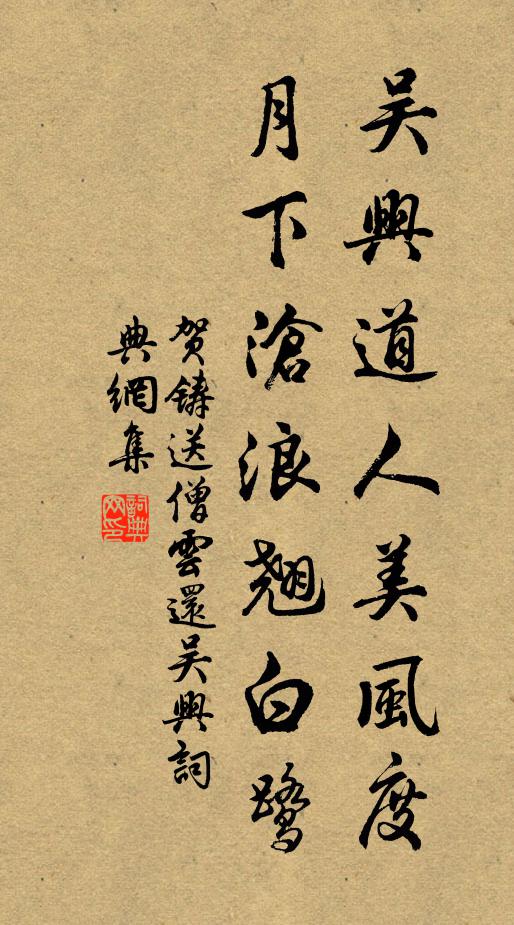 吴興道人美風度
月下滄浪翹白鷺
贺鑄送僧雲還吴興詞
典網集
詞典
网印